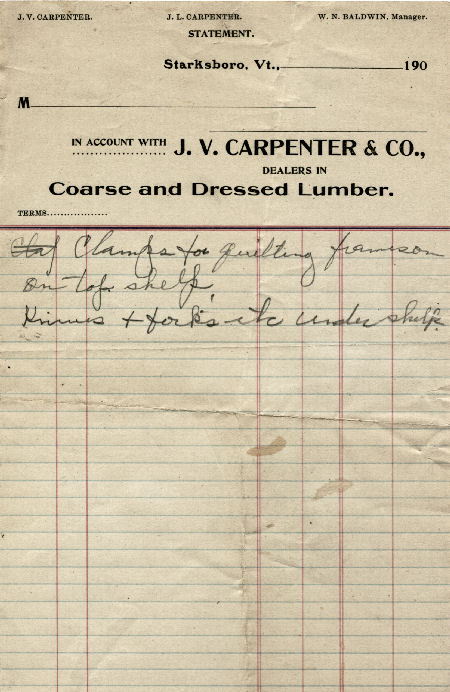 J. V. CARPENTER. J. L. CARPENTER. W. N. BALDWIN, Manager.
STATEMENT.
Starksboro, Vt., 190
M
IN ACCOUNT WITH J. V. CARPENTER & CO.,
DEALERS IN
Coarse and Dressed Lumber.
TERMS
Clamps for quilting frames on
on top shelf,
Knives + forks etc under shelf.